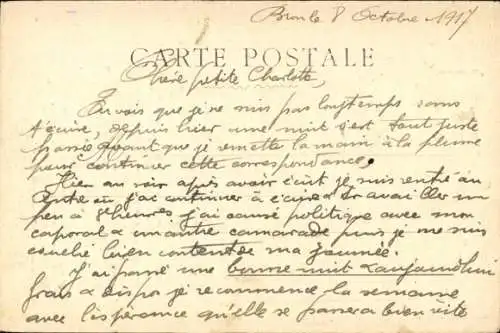 Bron le 8 Octobre 1917
CARTE POSTALE
Chère petite Charlotte,
Tu vois que je ne suis pas longtemps sans
t'écrire, depuis hier une nuit s'est tout juste
passée avant que je remette la main à la plume
pour continuer cette correspondance.
Hier au soir après avoir écrit je suis rentré au
j'ai continuer à écrire & travailler un
peu à 8 heures j'ai causé politique avec mon
caporal & un autre camarade puis je me suis
couché bien content de ma journée.
J'ai passé une bonne nuit & aujourd'hui
frais & dispo je recommence la semaine
avec l'espérance qu'elle se passera bien vite